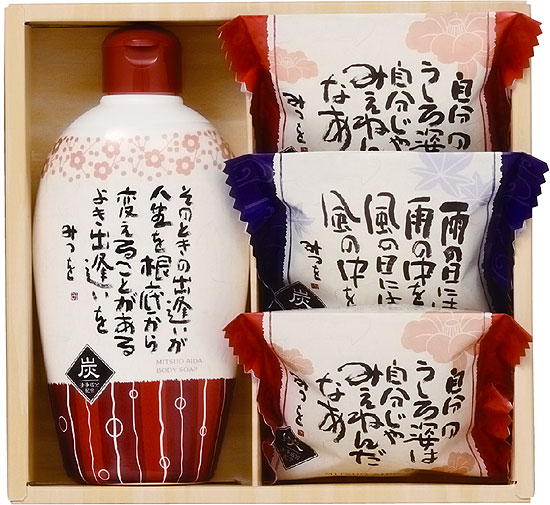 そのときの出逢いが
人生を根底から
変えることがある
よき出逢いを
みつを
炭
浄身成分
配合
MITSUO AIDA
BODY SOAP
自分の
うしろ姿は
自分じゃ
みえねんだ
なあ
みつを
雨の日には
雨の中を
風の日には
風の中を
みつを
炭
自分の
うしろ姿は
自分じゃ
みえねんだ
なあ
みつを